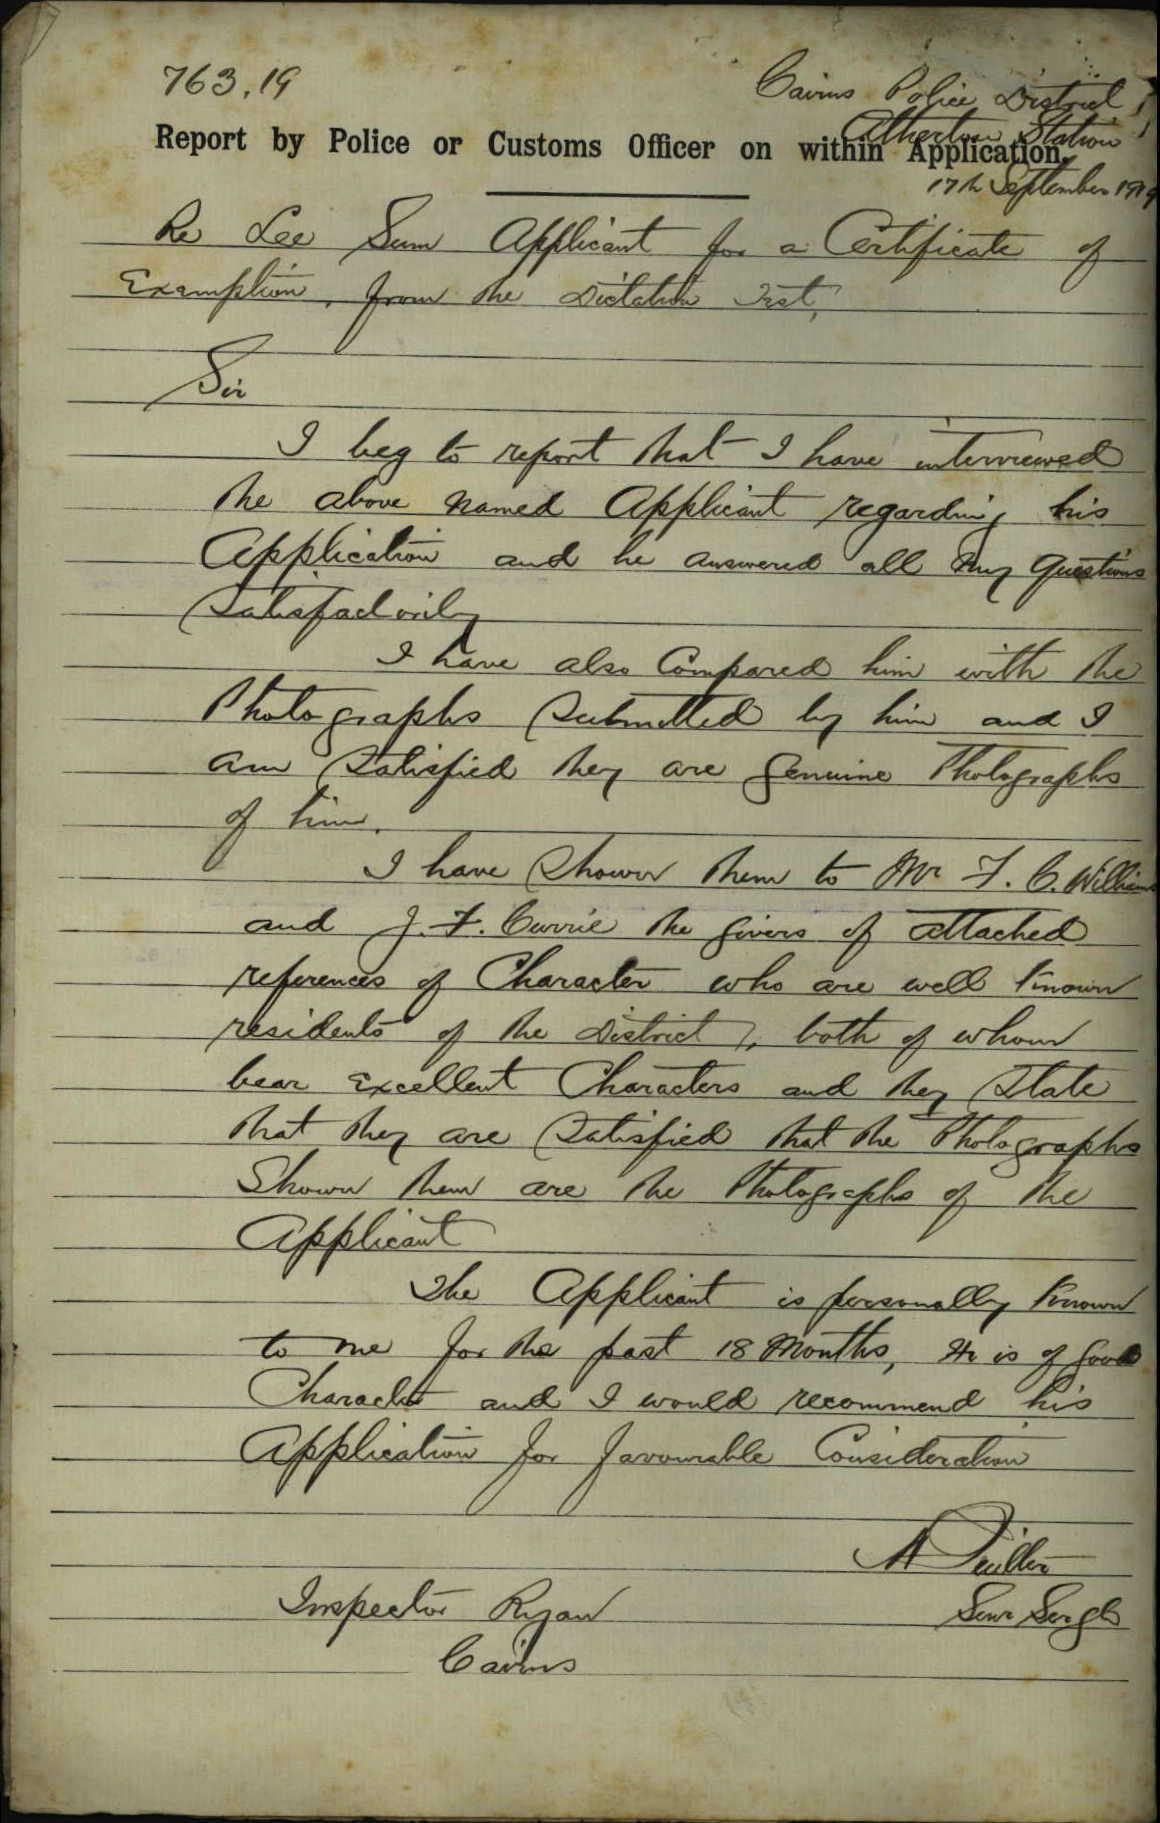 763.19
Cairns Police District
Atherton Station
Report by Police or Customs Officer on within Application.
17th September 1919
Re Lee Sum Applicant for a Certificate of
Exemption, from the Dictation Test,
Sir
I beg to report that I have interviewed
the above named Applicant regarding his
Application and he answered all my questions
Satisfactorily
I have also Compared him with the
Photographs Submitted by him and I
am Satisfied they are genuine Photographs
of him.
I have Shown them to Mr F. C. Williams
and J. F. Currie the givers of attached
references of Character who are well known
residents of the District, both of whom
bear Excellent Characters and they State
that they are Satisfied that the Photographs
Shown them are the Photographs of the
Applicant
The Applicant is personally known
to me for the past 18 Months, He is of good
Character and I would recommend his
Application for favourable Consideration
Senr Sergt
Inspector Ryan
Cairns